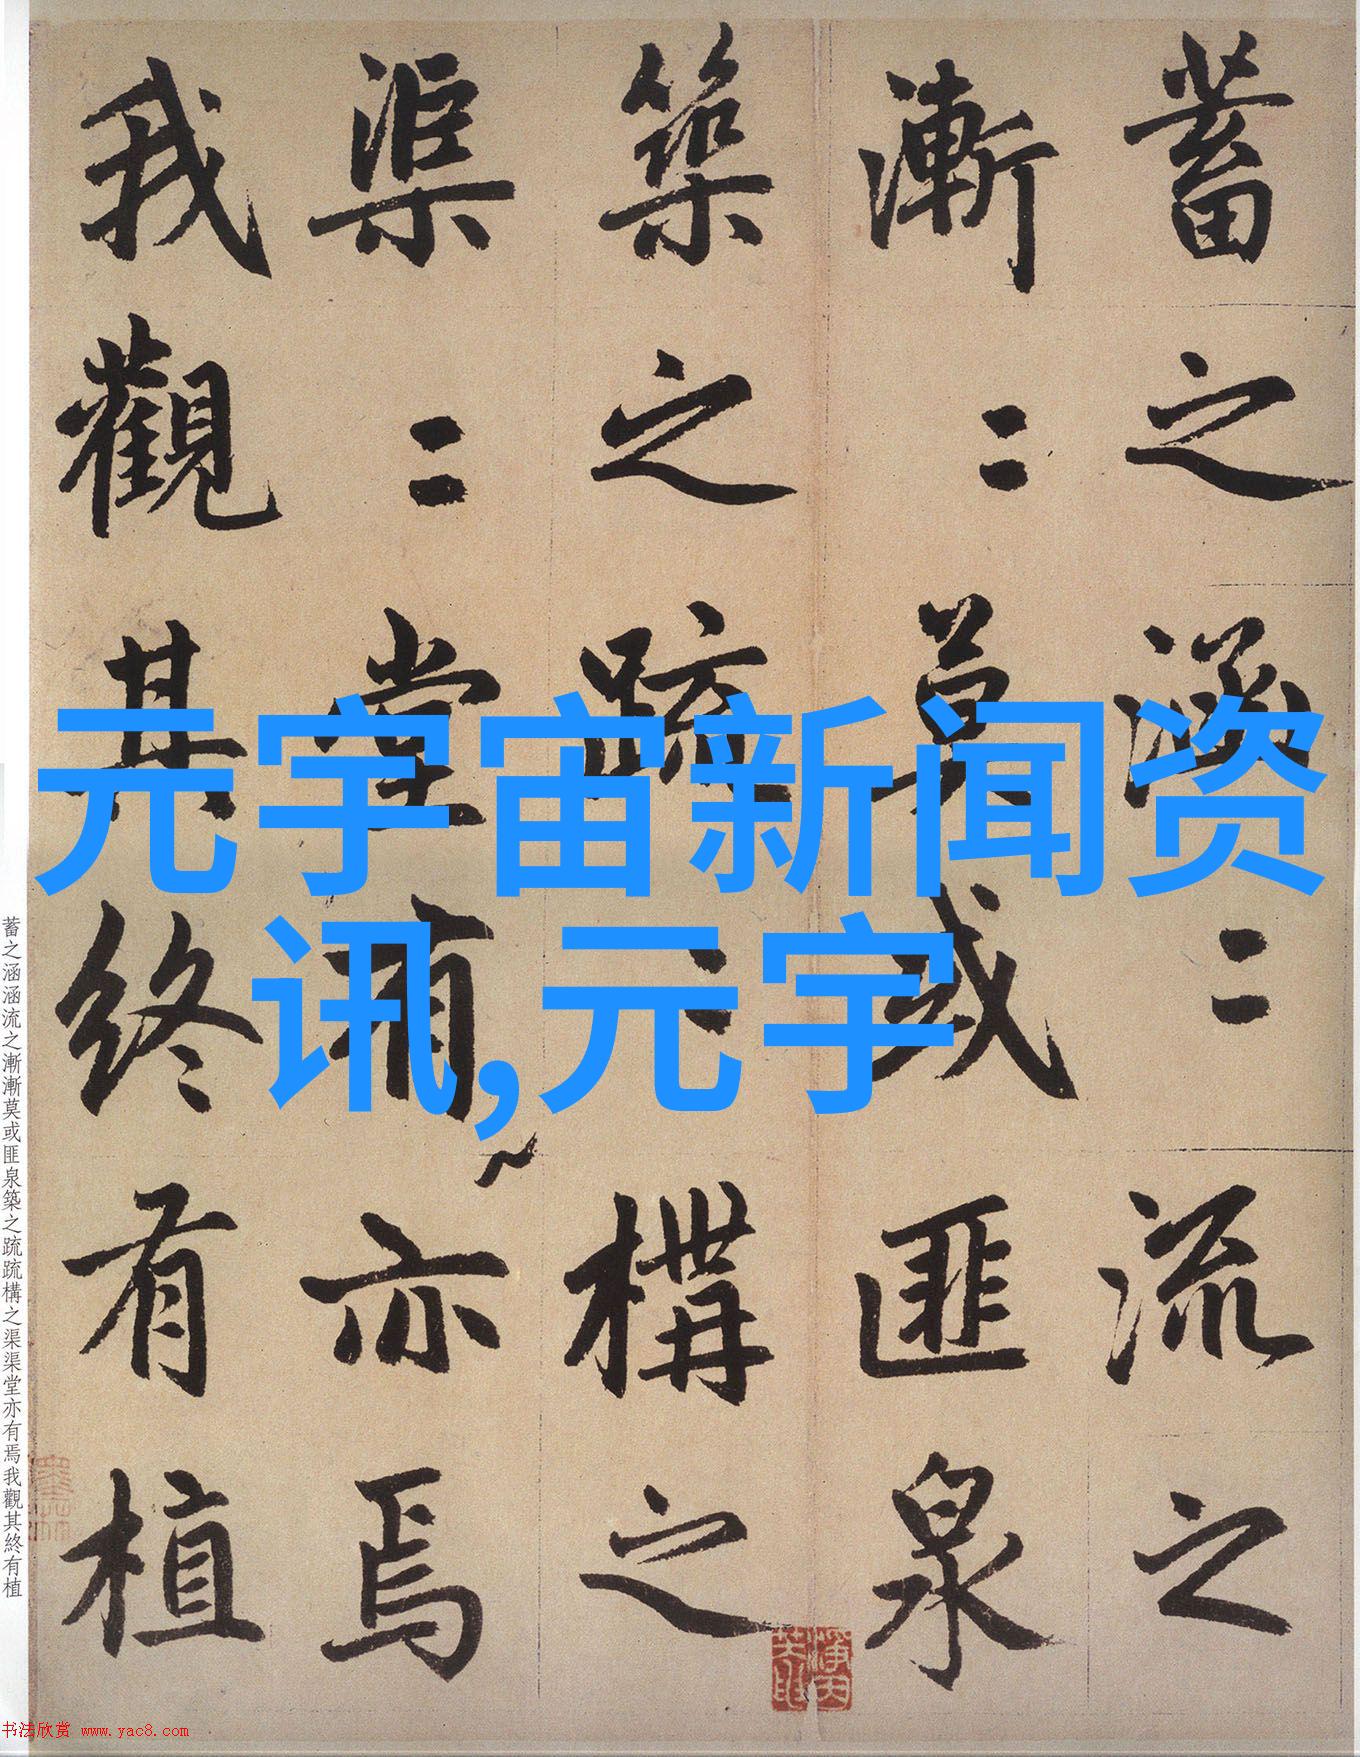 蓄之涵〻流之
漸〻莫或匪泉
築之疏〻構之
渠〻堂有亦焉
我觀其終有植
元宇宙新闻资
讯,元宇
蓄之涵涵流之漸漸莫或匪泉築之疏疏構之渠渠堂亦有焉我觀其終有植
书法欣赏 www.yac8.com